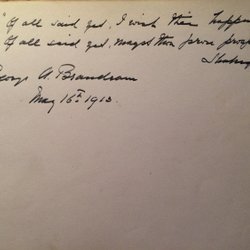 "Of all said yet, I wish thee happ
Of all said yet, mayst thou prove prosp
Shakesp
George A. Brandram
May 16th 1913.